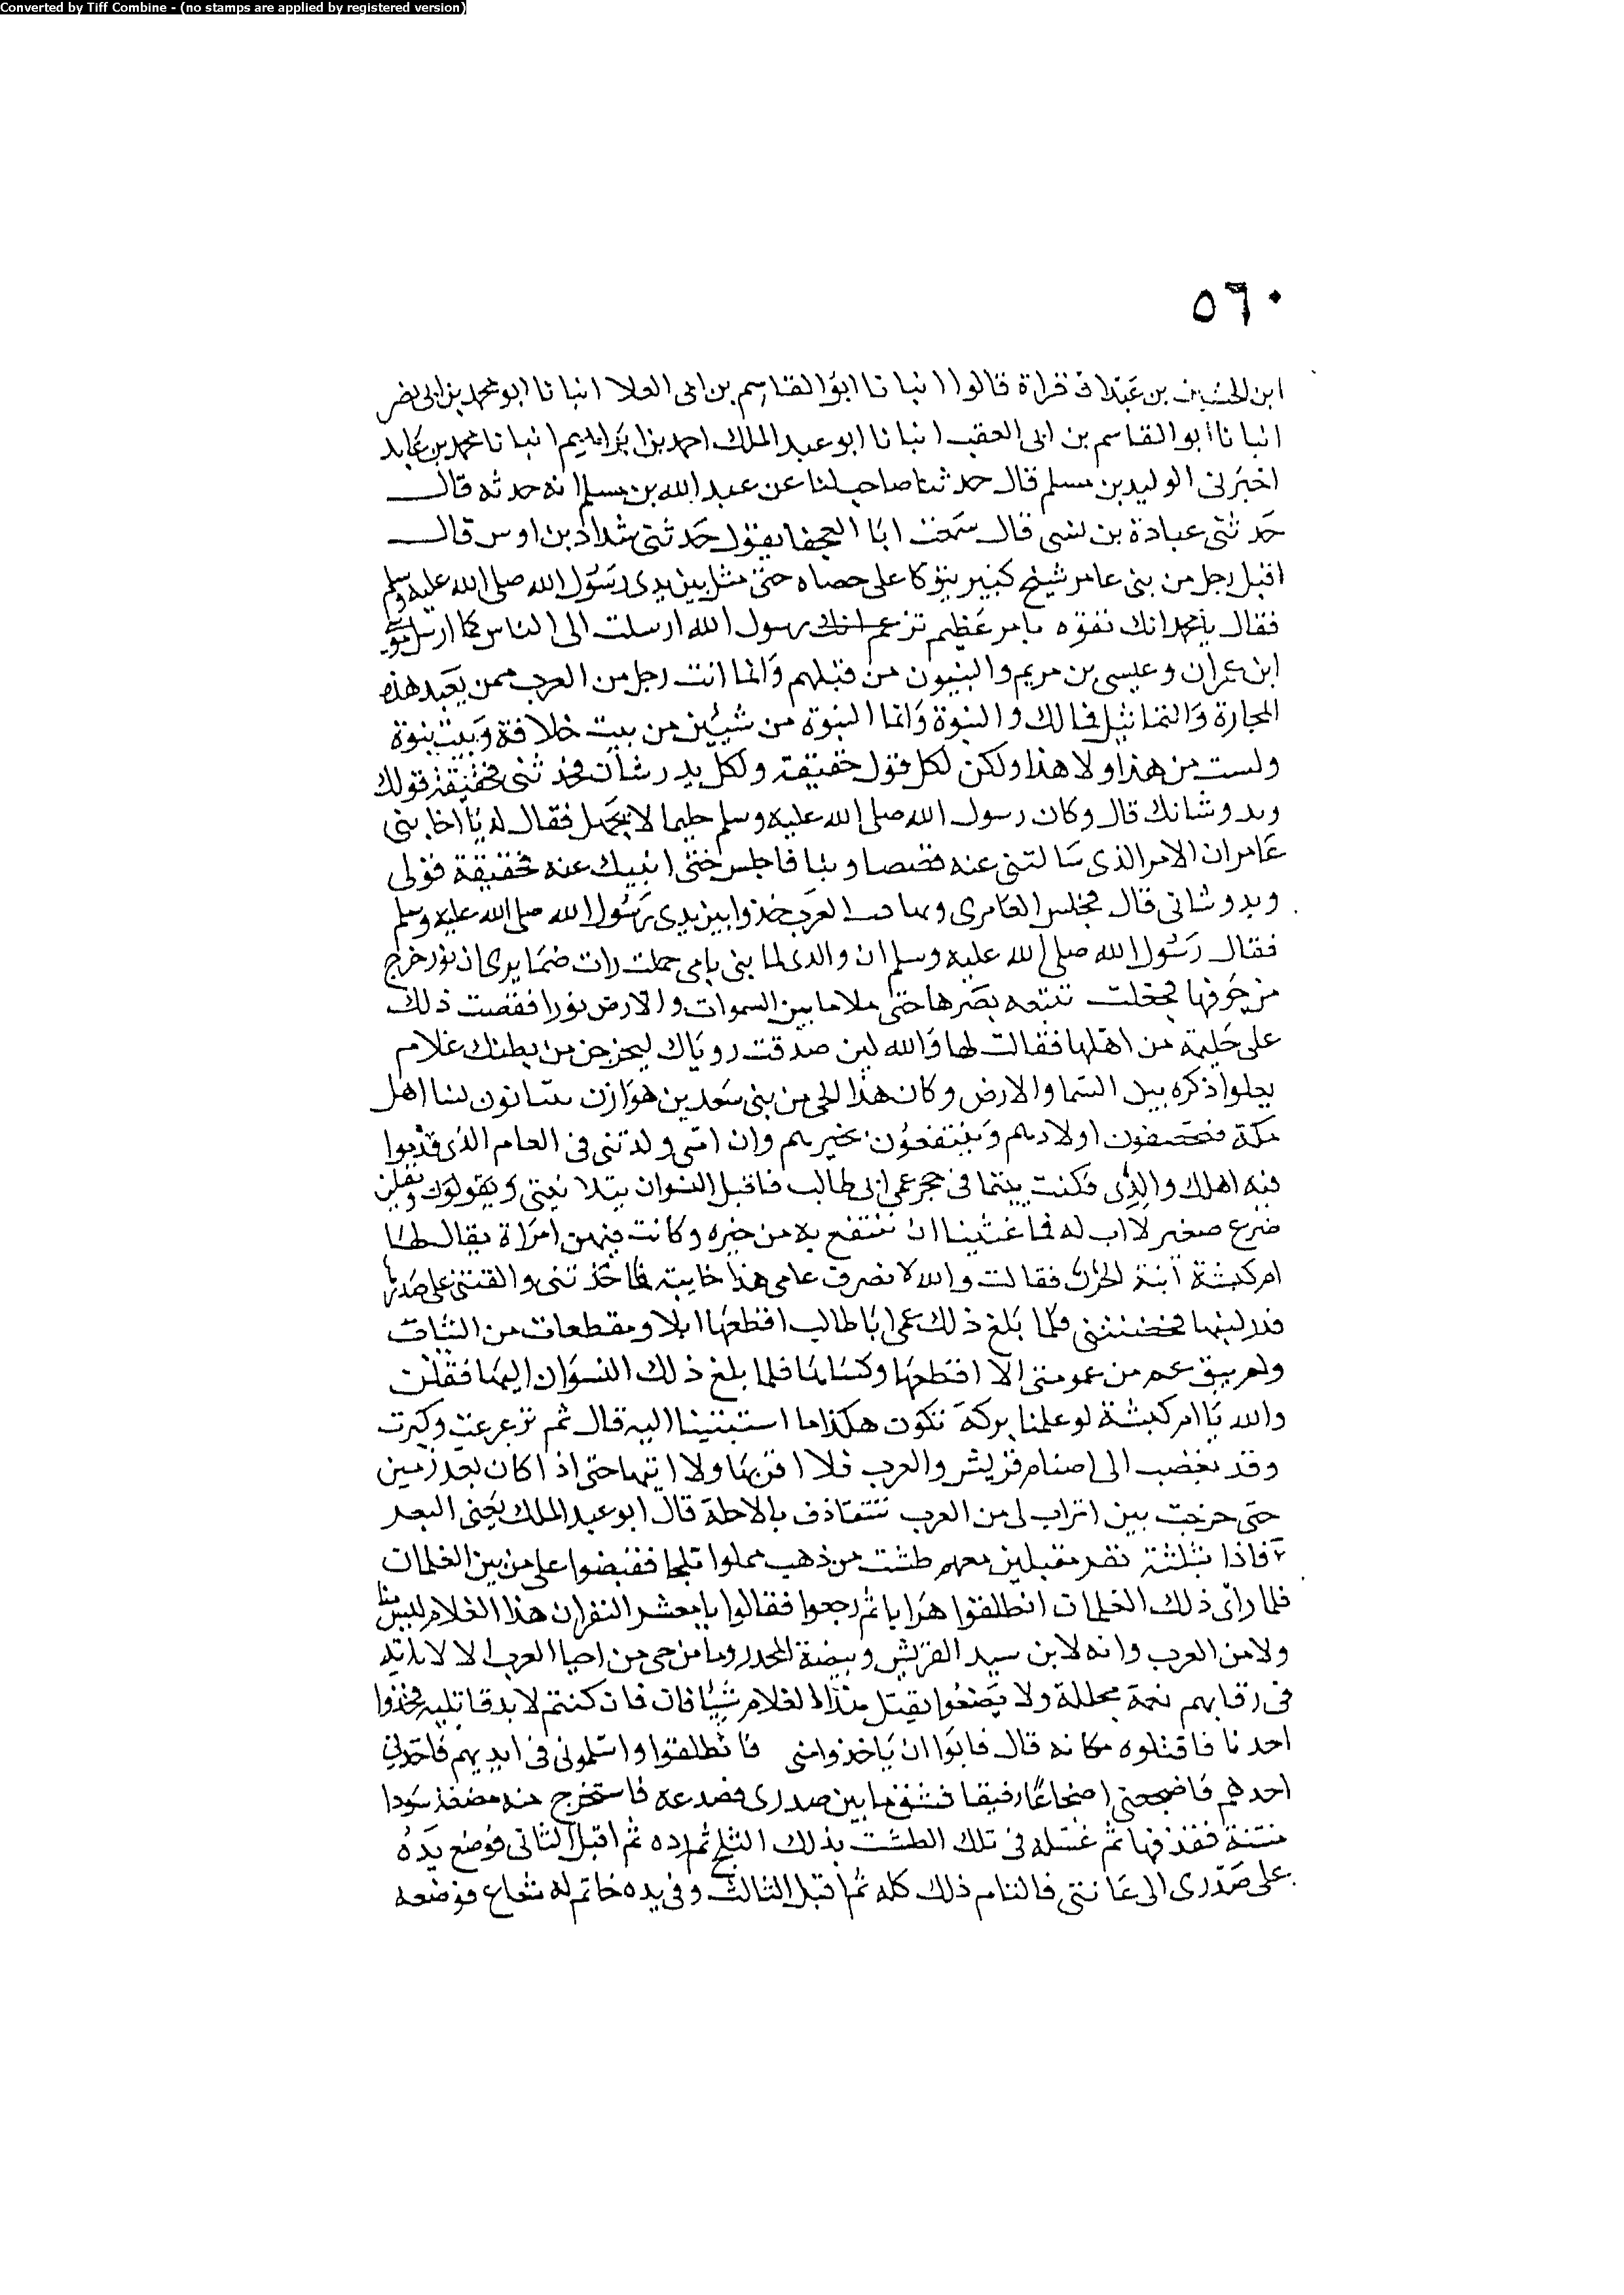 Converted by Tiff Combine - (no stamps are applied by registered version)
٥٦٠
ابن الحسين بن عبدان قراة قالوا انبانا ابو القاسم بن ابى العلا انبانا ابو محمد بن ابى نصر
انبانا ابو القاسم بن ابى العقب انبانا ابو عبد الملك احمد بن ابراهيم انبانا محمد بن عايد
اخبرنى الوليد بن مسلم قال حدثنا صاحب لنا عن عبد الله بن مسلم انه حدثه قال
حدثنى عبادة بن نسى قال سمعت ابا العجفا يقول حدثنى شداد بن اوس قال
اقبل رجل من بنى عامر شيخ كبير يتوكا على عصاه حتى مثل بين يدى رسول الله صلى الله عليه وسلم
فقال يا محمد انك تفوه بامر عظيم تزعم انك رسول الله ارسلت الى الناس كما ارسل موسى
ابن عمران وعيسى بن مريم والنبيون من قبلهم وانما انت رجل من العرب ممن يعبد هذه
الحجارة والتماثيل فمالك والنبوة وانما النبوة من شيئين من بيت خلافة وبيت نبوة
ولست من هذا ولا هذا ولكن لكل قول حقيقة ولكل بدو شان فحدثنى بحقيقة قولك
وبدو شانك قال وكان رسول الله صلى الله عليه وسلم حليما لا يجهل فقال له يا اخا بنى
عامر ان الامر الذى سالتنى عنه قصصا ونبا فاجلس حتى انبيك عنه بحقيقة قولى
وبدو شانى قال فجلس العامرى بين يدى رسول الله صلى الله عليه وسلم
فقال رسول الله صلى الله عليه وسلم ان والدى لما بنى بامى حملت رات فيما يرى ان نور خرج
من جوفها فجعلت تتبعه بصرها حتى ملا ما بين السموات والارض نورا فقصت ذلك
على حليمة من اهلها فقالت لها والله لين صدقت روياك ليخرجن من بطنك غلام
يعلوا ذكره بين السما والارض وكان هذا الحى من بنى سعد بن هوازن نسا اهل
مكة فيحضنون اولادهم وينتفعون بخيرهم وان امى ولدتنى فى العام الذى قدموا
فيه اهلك والدى فكنت يتيما فى حجر عمى ابى طالب فاقبل النسوان ويقولون
ضرع صغير لا اب له فما عسينا ان ننتفع به من خيره وكانت فيهن امراة يقال لها
ام كبشة ابنة الحرث فقالت والله لا انصرف عامى هذا خايبة فاخذتنى والقتنى على صدرها
فدر لبنها فحضنتنى فلما بلغ ذلك عمى ابا طالب اقطعها ابلا ومقطعات من الثياب
ولم يبق عم من عمومتى الا اقطعها وكساها فلما بلغ ذلك النسوان اليها فقلن
والله يا ام كبشة لو علمنا بركة تكون هكذا ما سبقتينا اليه قال ثم ترعرعت وكبرت
وقد بغضت الى اصنام قريش والعرب فلا اقربها ولا اتيها حتى اذا كان بعد زمين
حتى خرجت بين اتراب لى من العرب نتقاذف بالاجلة قال ابو عبد الملك يعنى البعر
فاذا بثلثة نفر مقبلين معهم طشت من ذهب مملوا ثلجا فقبضوا على من بين الغلمان
فلما راى ذلك الغلمان انطلقوا هرابا ثم رجعوا فقالوا يا معشر النفر ان هذا الغلام ليس منا
ولا من العرب وانه لابن سيد القريش وبيضة المجد وما من حى من احيا العرب الا لابايه
فى رقابهم نعمة مجللة ولا تضيعوا بقتل هذا الغلام شيئا فان كنتم لا بد قاتليه فخذوا
احدنا فاقتلوه مكانه قال فابوا ان ياخذوا منى فانطلقوا واسلمونى فى ايديهم فاخذنى
احدهم فاضجعنى اضجاعا رفيقا فشق ما بين صدرى فصدعه فاستخرج منه مضغة سودا
منتنة فقذفها ثم غسله فى تلك الطشت بذلك الثلج ثم رده ثم اقبل الثانى فوضع يده
على صدرى الى عانتى فالتام ذلك كله ثم اقبل الثالث وفى يده خاتم له شعاع فوضعه